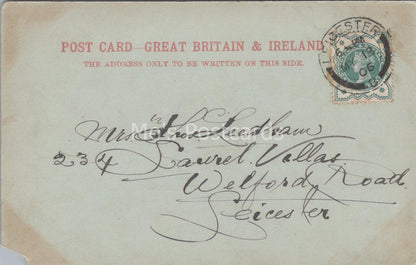 POST CARD—GREAT BRITAIN & IRELAND.
THE ADDRESS ONLY TO BE WRITTEN ON THIS SIDE.
LEICESTER
Mrs Thos Leedham
234 Laurel Villas
Welford Road
Leicester